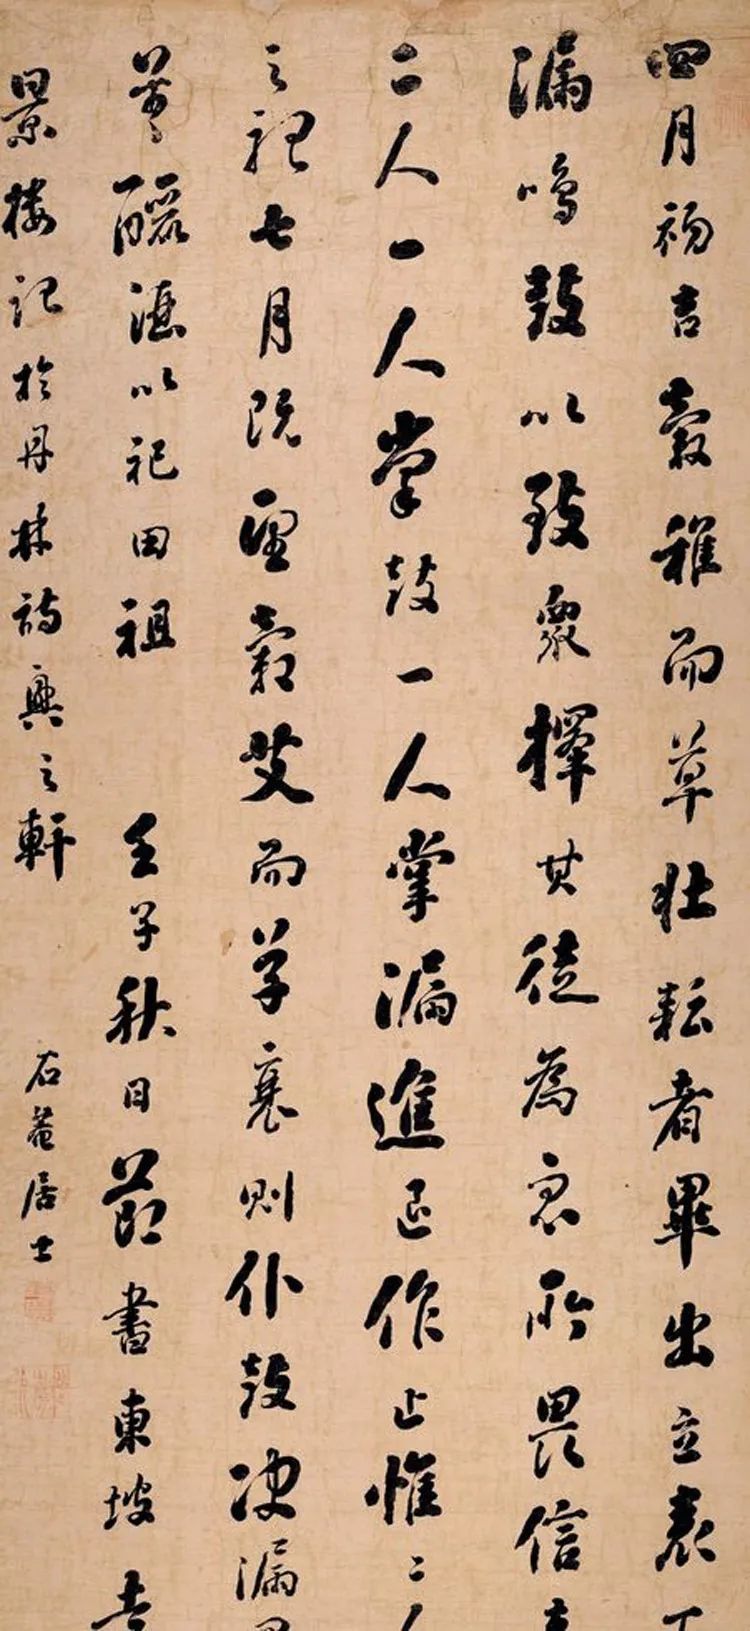 四月初吉穀稚而草壯耘者畢出立表下
漏鳴鼓以致眾擇其徒為眾所畏信者
二人一人掌鼓一人掌漏進退作止惟二人
之聽七月既望穀艾而草衰則仆鼓決漏
羊豕酒醴以祀田祖 壬子秋日節書東坡
景樓記於丹林詩興之軒 石菴居士